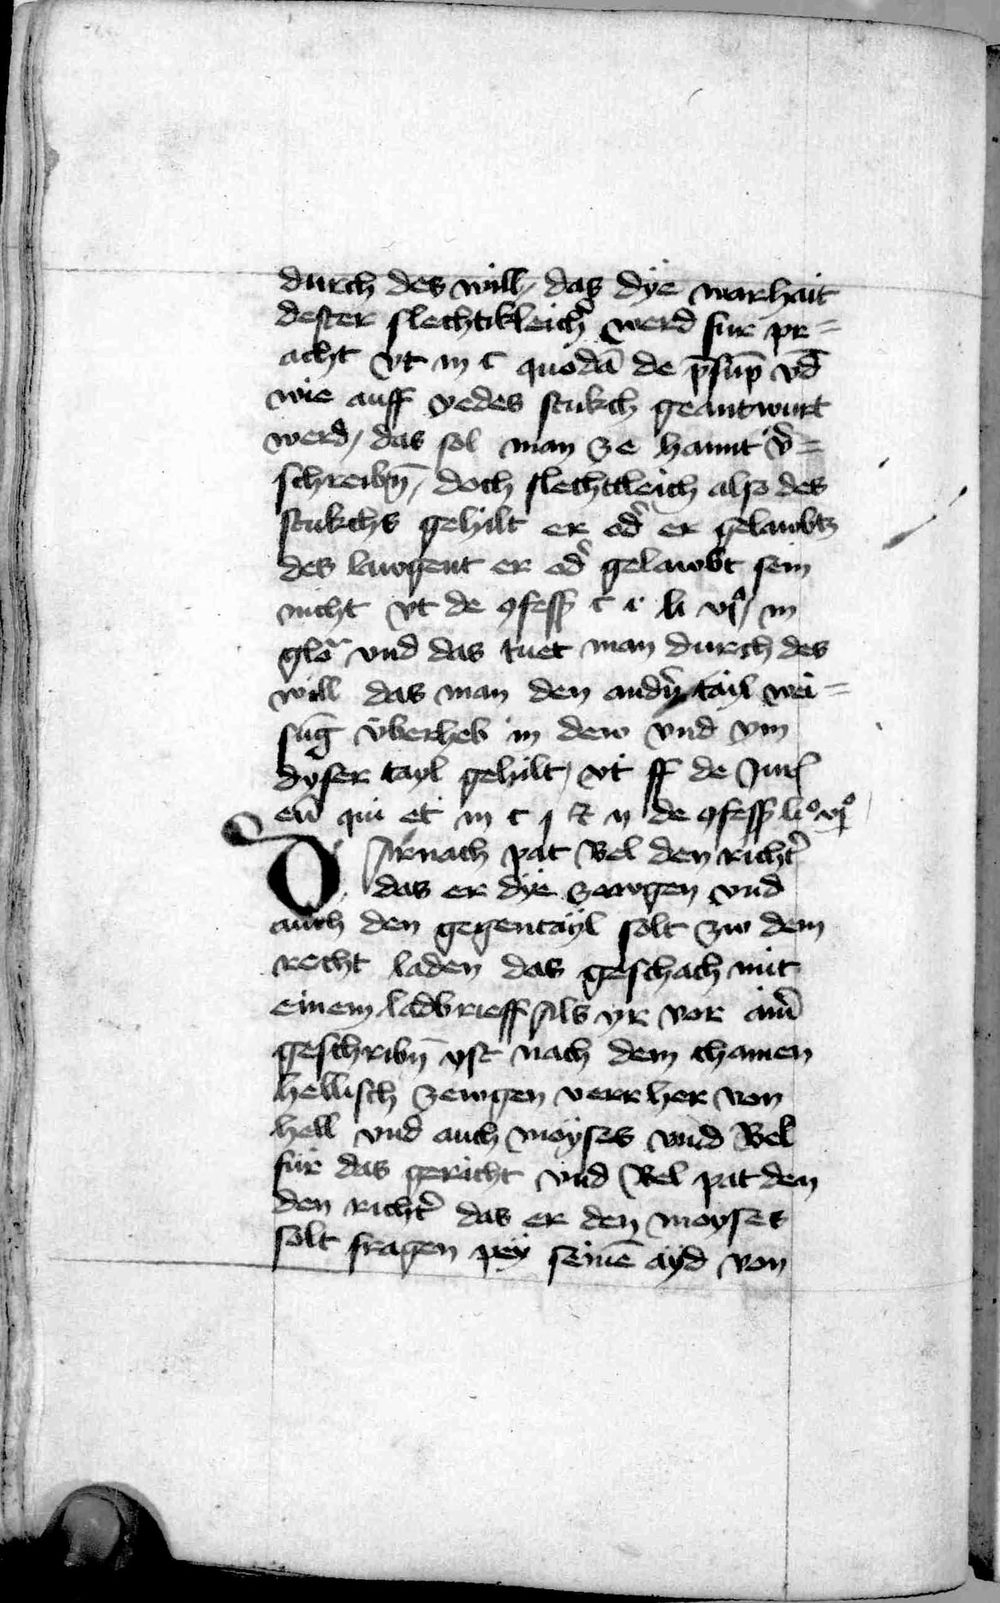 durch des will / das dÿe warhait
dester slechtikleichʼ werd fur pr=
acht vt in c quodā de p̄sūp vn̄d
wie auff yedes stukch geantwurt
werd / das sol man ze hannt vʼ=
schreibn̄ / doch slechtleich also des
stukchs gehilt er odʼ er gelawbtz
des lawgent er odʼ gelawbt sein
nicht vt de ꝯfess c i li vjº / in
gloʼ vnd das tuet man durch des
will das man den andʼn tail wei=
sūg v̈berheb in dew vnd ym
dyser tayl gehilt / vt ff de Jur
eū qui et in c j et ij de ꝯfess liº vjº
DArnach pat Bel den richtʼ
das er dÿe zewgen vnd
auch den gegentaÿl solt zw dem
recht laden das geschach mit
einem ladbrieff Als yr vor ainʼ
geschribn̄ yst nach dem chamen
hellisch zewgen verr her von
hell vnd auch moÿses vnd Bel
für das gericht vnd Bel pat den
den richtʼ das er den moyses
solt fragen peÿ seinē aÿd von